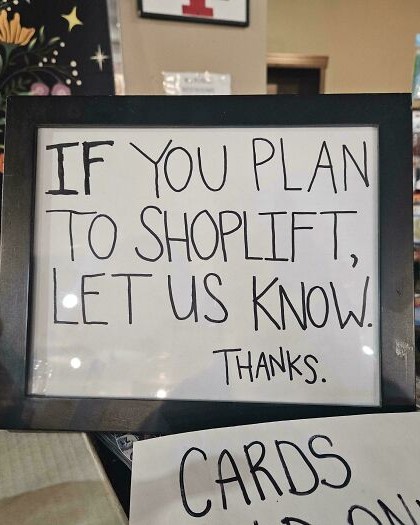 IF YOU PLAN
TO SHOPLIFT,
LET US KNOW.
THANKS.
CARDS